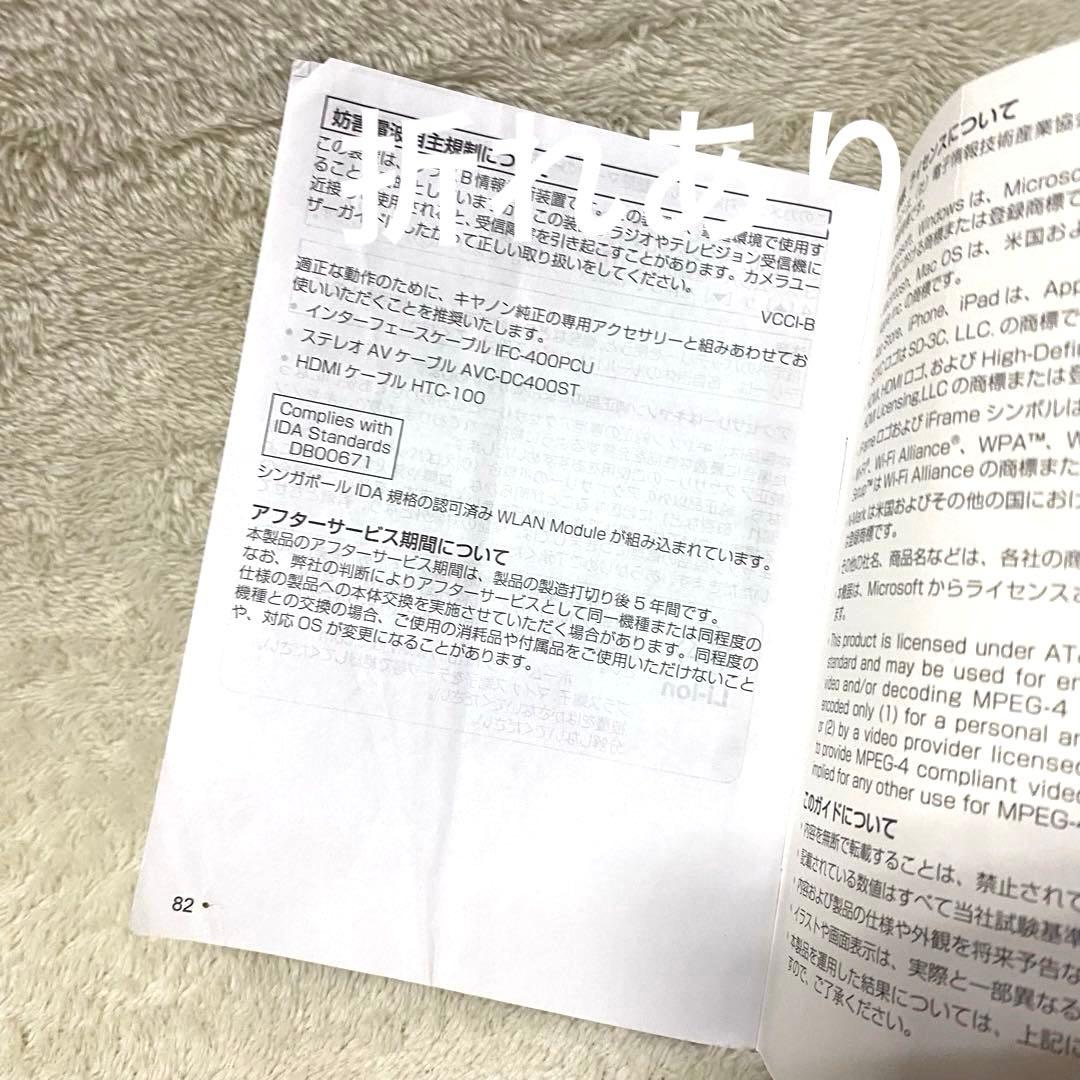 折れあり
妨害電波自主規制について
この装置は、クラスB情報技術装置です。この装置は、家庭環境で使用す
ることを目的としていますが、この装置がラジオやテレビジョン受信機に
近接して使用されると、受信障害を引き起こすことがあります。カメラユー
ザーガイドにしたがって正しい取り扱いをしてください。
VCCI-B
適正な動作のために、キヤノン純正の専用アクセサリーと組みあわせてお
使いいただくことを推奨いたします。
• インターフェースケーブル IFC-400PCU
• ステレオ AV ケーブル AVC-DC400ST
• HDMI ケーブル HTC-100
Complies with
IDA Standards
DB00671
シンガポール IDA 規格の認可済み WLAN Module が組み込まれています。
アフターサービス期間について
本製品のアフターサービス期間は、製品の製造打切り後 5 年間です。
なお、弊社の判断によりアフターサービスとして同一機種または同程度の
仕様の製品への本体交換を実施させていただく場合があります。同程度の
機種との交換の場合、ご使用の消耗品や付属品をご使用いただけないこと
や、対応 OS が変更になることがあります。
82
ライセンスについて
電子情報技術産業協会
Windows は、Microso
または登録商標で
Mac OS は、米国およ
の商標です。
Store、iPhone、iPad は、App
ロゴは SD-3C, LLC. の商標で
HDMI ロゴ、および High-Defin
HDMI Licensing, LLC の商標または登
ロゴおよび iFrame シンボルは
Wi-Fi Alliance®、WPA™、W
は Wi-Fi Alliance の商標また
は米国およびその他の国におけ
登録商標です。
その他の社名、商品名などは、各社の商
本機器は、Microsoft からライセンスさ
ます。
This product is licensed under AT&
standard and may be used for en
video and/or decoding MPEG-4
encoded only (1) for a personal an
or (2) by a video provider licensed
to provide MPEG-4 compliant video
implied for any other use for MPEG-4
このガイドについて
• 内容を無断で転載することは、禁止されて
• 記載されている数値はすべて当社試験基準
• 内容および製品の仕様や外観を将来予告な
• イラストや画面表示は、実際と一部異なる
• 本製品を運用した結果については、上記に
すので、ご了承ください。